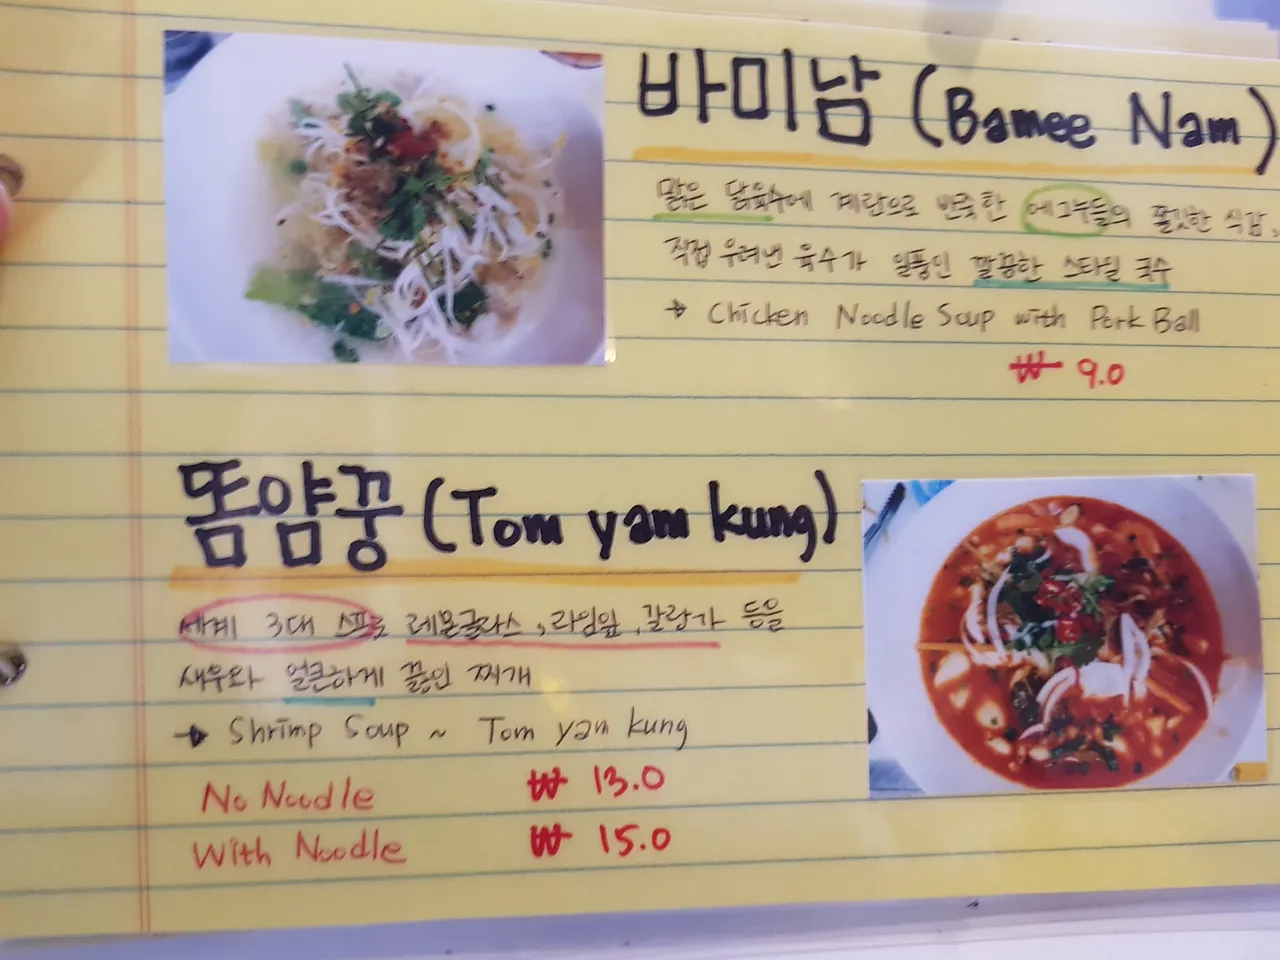 바미남 (Bamee Nam)
맑은 닭육수에 계란으로 반죽한 에그누들의 쫄깃한 식감,
직접 우려낸 육수가 일품인 깔끔한 스타일 국수
→ Chicken Noodle Soup with Pork Ball
₩ 9.0
똠얌꿍 (Tom yam kung)
세계 3대 스프로 레몬글라스, 라임잎, 갈랑가 등을
새우와 얼큰하게 끓인 찌개
→ Shrimp Soup ~ Tom yam kung
No Noodle ₩ 13.0
With Noodle ₩ 15.0